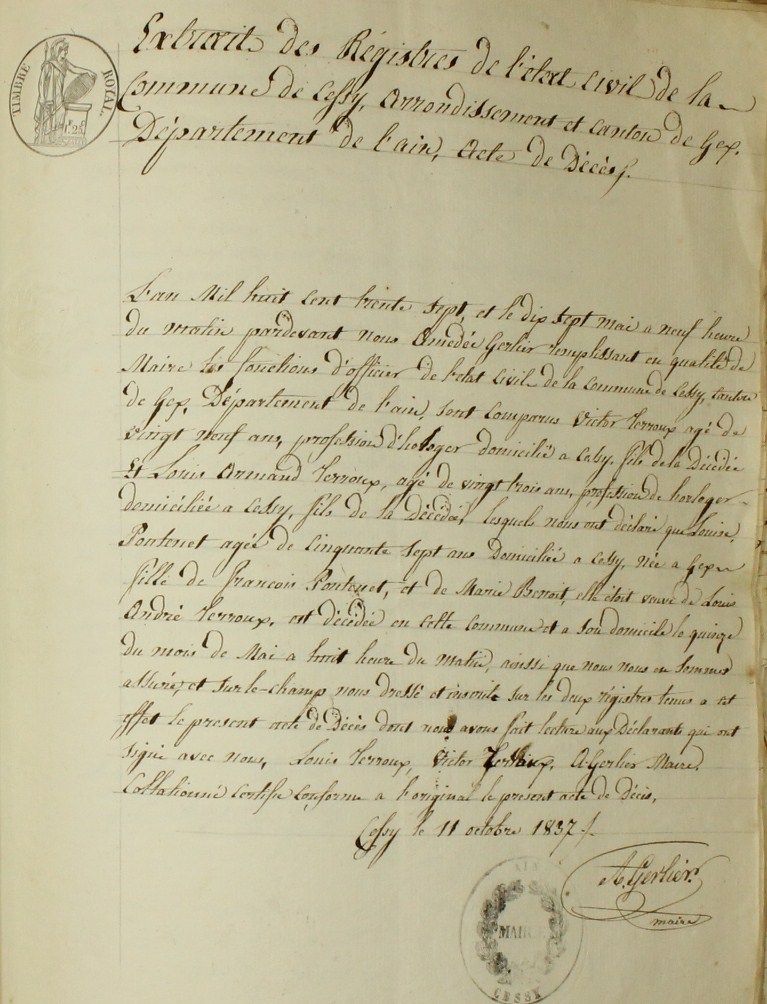 TIMBRE ROYAL
Extrait des Régistres de l'état Civil de la
Commune de Cessy, arrondissement et canton de Gex.
Département de l'ain, acte de Décès.
L'an Mil huit cent trente sept, et le dix sept mai a neuf heure
du matin pardevant nous Amedée Gerlier remplissant en qualité de
Maire les fonctions d'officier de l'etat Civil de la Commune de Cessy, canton
de Gex, Département de l'ain, sont comparus Victor Terroux agé de
vingt neuf ans, profession d'horloger domicilié a Cessy, fils de la Décédée
Et Louis Armand Terroux, agé de vingt trois ans, profession de horloger
domiciliée a Cessy, fils de la Décédée, lesquels nous ont déclaré que Louise
Pontenet agée de Cinquante sept ans Domiciliée a Cessy, née a Gex
fille de françois Pontenet, et de Marie Benoit, elle étoit veuve de Louis
André Terroux, est décédée en cette Commune et a son domicile le quinze
du mois de Mai a huit heure du matin, ainssi que nous nous en sommes
assurés, et sur-le-champ nous dressé et inscrite sur les deux régistres tenus a cet
effet le present acte de Décès dont nous avons fait lecture aux Déclarants qui ont
signé avec nous, Louis Terroux, Victor Terroux, A Gerlier Maire.
Collationné Certifié Conforme a l'original le présent acte de Décès,
Cessy le 11 octobre 1837
A. Gerlier
maire
MAIRIE
CESSY